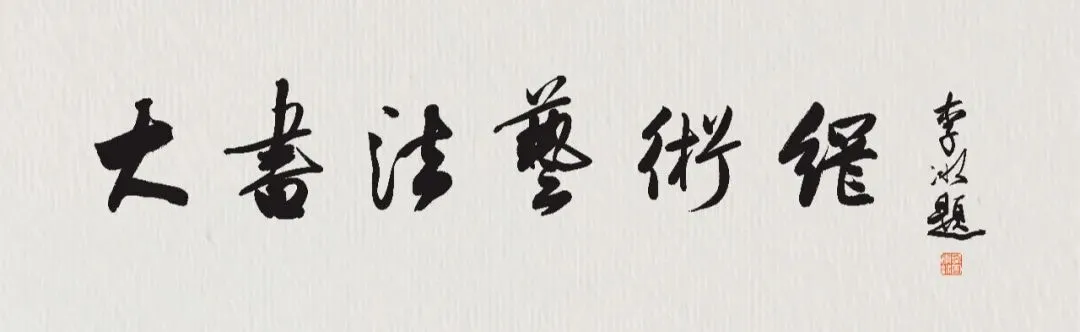 大書法藝術網
李冰題